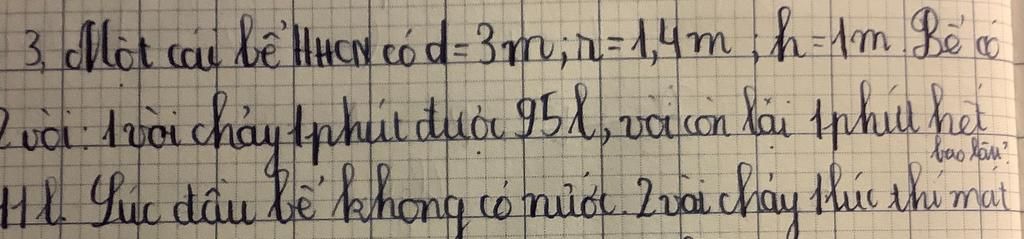 3, Một cái bể HHCN có d=3m; r=1,4m; h=1m. Bể có
2 vòi: 1 vòi chảy 1 phút được 95l, vòi còn lại 1 phút hết
bao lâu?
11l. Lúc đầu bể không có nước. 2 vòi chảy 1 lúc thì mất